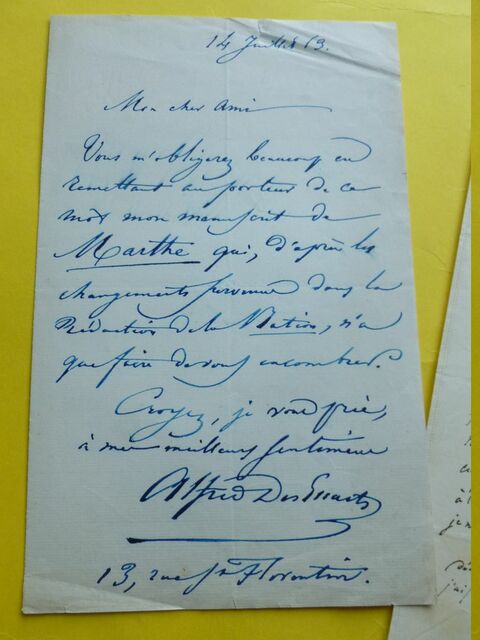 14 Juillet 63.
Mon cher Ami
Vous m'obligerez beaucoup en
remettant au porteur de ce
mot mon manuscrit de
Marthe qui, d'après les
changements survenus dans la
Rédaction de la Nation, n'a
que faire de vous encombrer.
Croyez, je vous prie,
à mes meilleurs sentiments
Alfred Des Essarts
13, rue St Florentin.